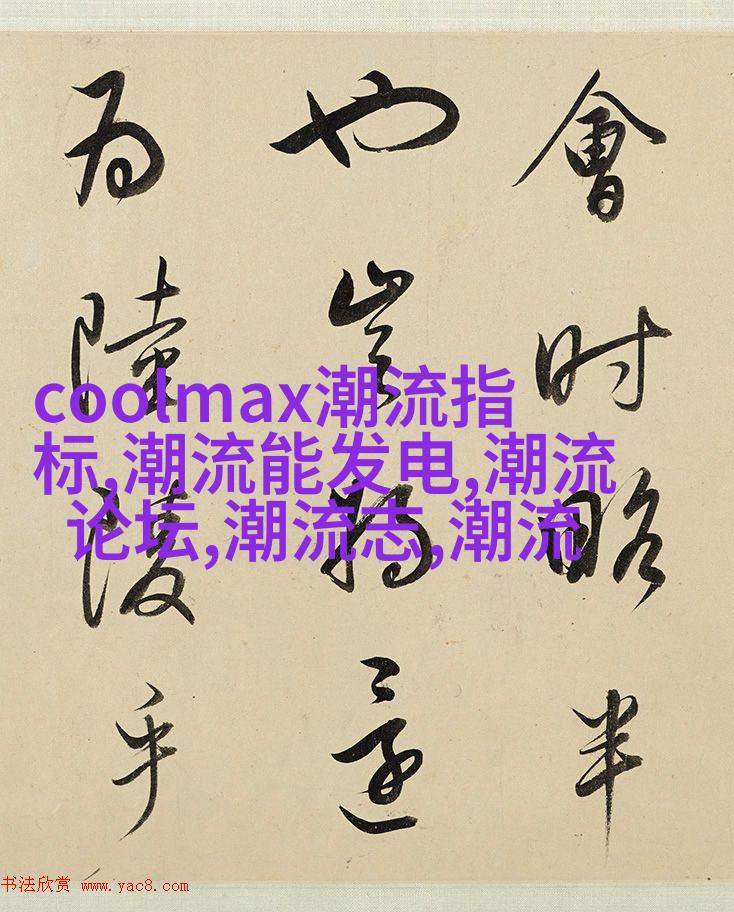 會时略半
也豈獨
为陸陵乎
coolmax潮流指
标,潮流能发电,潮流
论坛,潮流志,潮流
书法欣赏 www.yac8.com